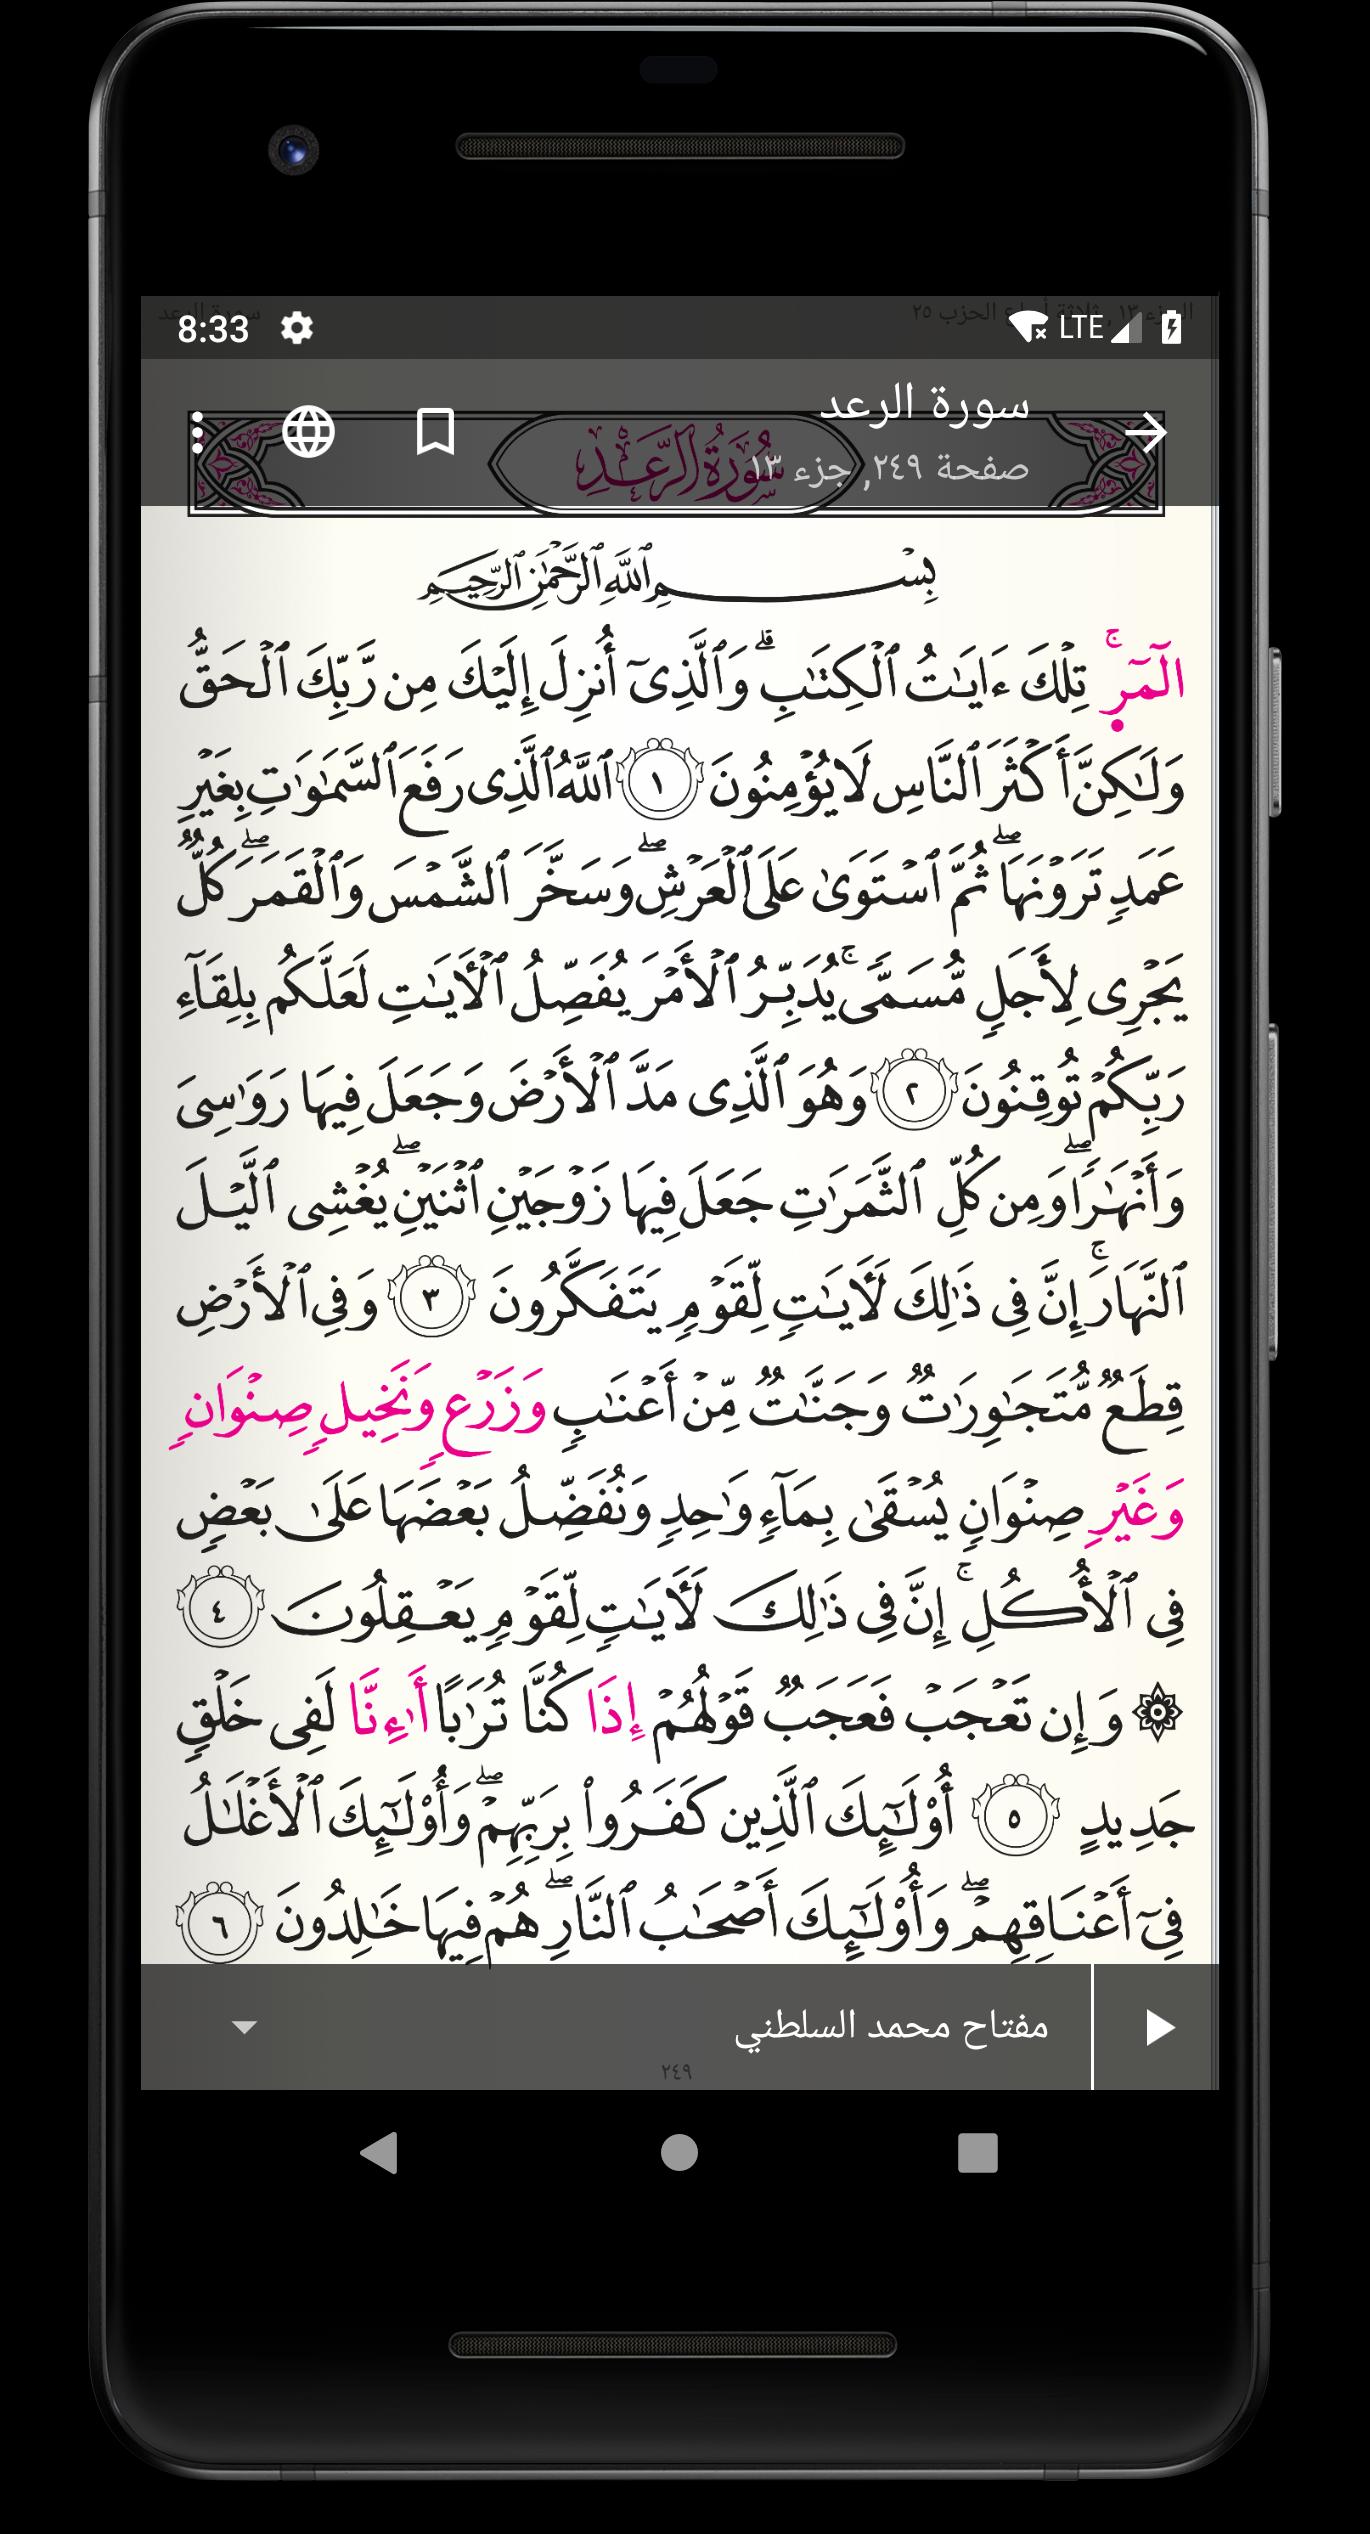 سورة الرعد
الجزء ١٣, ثلاثة أرباع الحزب ٢٥
8:33
LTE
سورة الرعد
صفحة ٢٤٩, جزء ١٣
سُورَةُ الرَّعْدِ
بِسْمِ ٱللَّهِ ٱلرَّحْمَٰنِ ٱلرَّحِيمِ
الٓمٓرۚ تِلْكَ ءَايَٰتُ ٱلْكِتَٰبِۗ وَٱلَّذِىٓ أُنزِلَ إِلَيْكَ مِن رَّبِّكَ ٱلْحَقُّ
وَلَٰكِنَّ أَكْثَرَ ٱلنَّاسِ لَا يُؤْمِنُونَ ١ ٱللَّهُ ٱلَّذِى رَفَعَ ٱلسَّمَٰوَٰتِ بِغَيْرِ
عَمَدٍ تَرَوْنَهَاۖ ثُمَّ ٱسْتَوَىٰ عَلَى ٱلْعَرْشِۖ وَسَخَّرَ ٱلشَّمْسَ وَٱلْقَمَرَۖ كُلٌّ
يَجْرِى لِأَجَلٍ مُّسَمًّىۚ يُدَبِّرُ ٱلْأَمْرَ يُفَصِّلُ ٱلْأَيَٰتِ لَعَلَّكُم بِلِقَآءِ
رَبِّكُمْ تُوقِنُونَ ٢ وَهُوَ ٱلَّذِى مَدَّ ٱلْأَرْضَ وَجَعَلَ فِيهَا رَوَٰسِىَ
وَأَنْهَٰرًاۖ وَمِن كُلِّ ٱلثَّمَرَٰتِ جَعَلَ فِيهَا زَوْجَيْنِ ٱثْنَيْنِۖ يُغْشِى ٱلَّيْلَ
ٱلنَّهَارَۚ إِنَّ فِى ذَٰلِكَ لَأَيَٰتٍ لِّقَوْمٍ يَتَفَكَّرُونَ ٣ وَفِى ٱلْأَرْضِ
قِطَعٌ مُّتَجَٰوِرَٰتٌ وَجَنَّٰتٌ مِّنْ أَعْنَٰبٍ وَزَرْعٍ وَنَخِيلٍ صِنْوَانٍ
وَغَيْرِ صِنْوَانٍ يُسْقَىٰ بِمَآءٍ وَٰحِدٍ وَنُفَضِّلُ بَعْضَهَا عَلَىٰ بَعْضٍ
فِى ٱلْأُكُلِۚ إِنَّ فِى ذَٰلِكَ لَأَيَٰتٍ لِّقَوْمٍ يَعْقِلُونَ ٤
۞ وَإِن تَعْجَبْ فَعَجَبٌ قَوْلُهُمْ إِذَا كُنَّا تُرَٰبًا أَٰءِنَّا لَفِى خَلْقٍ
جَدِيدٍ ٥ أُو۟لَٰٓئِكَ ٱلَّذِينَ كَفَرُوا۟ بِرَبِّهِمْۖ وَأُو۟لَٰٓئِكَ ٱلْأَغْلَٰلُ
فِىٓ أَعْنَاقِهِمْۖ وَأُو۟لَٰٓئِكَ أَصْحَٰبُ ٱلنَّارِۖ هُمْ فِيهَا خَٰلِدُونَ ٦
مفتاح محمد السلطني
٢٤٩